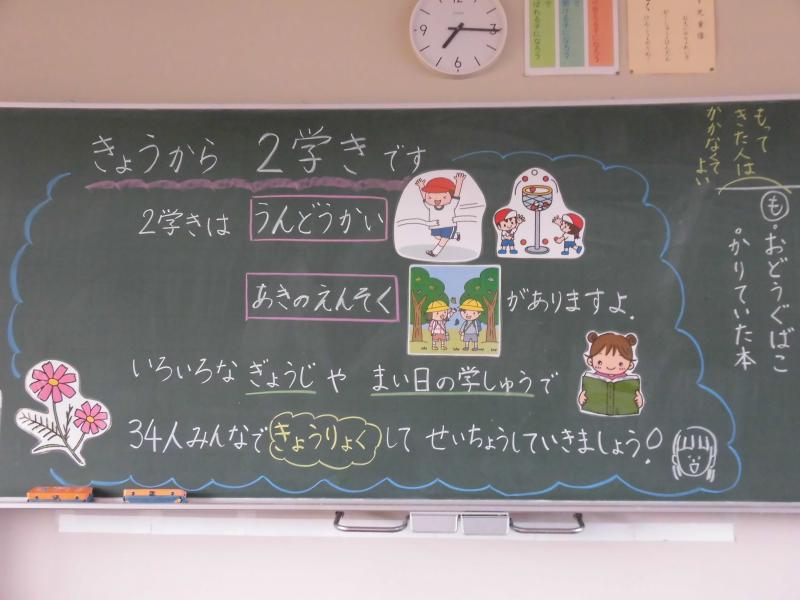 きょうから 2学きです
2学きは うんどうかい
あきのえんそく がありますよ.
いろいろな ぎょうじや まい日の学しゅうで
34人みんなで きょうりょく して せいちょうしていきましょう!
もって
きた人は
かかなくて
よい
も ・おどうぐばこ
・かりていた本
12
3
6
7